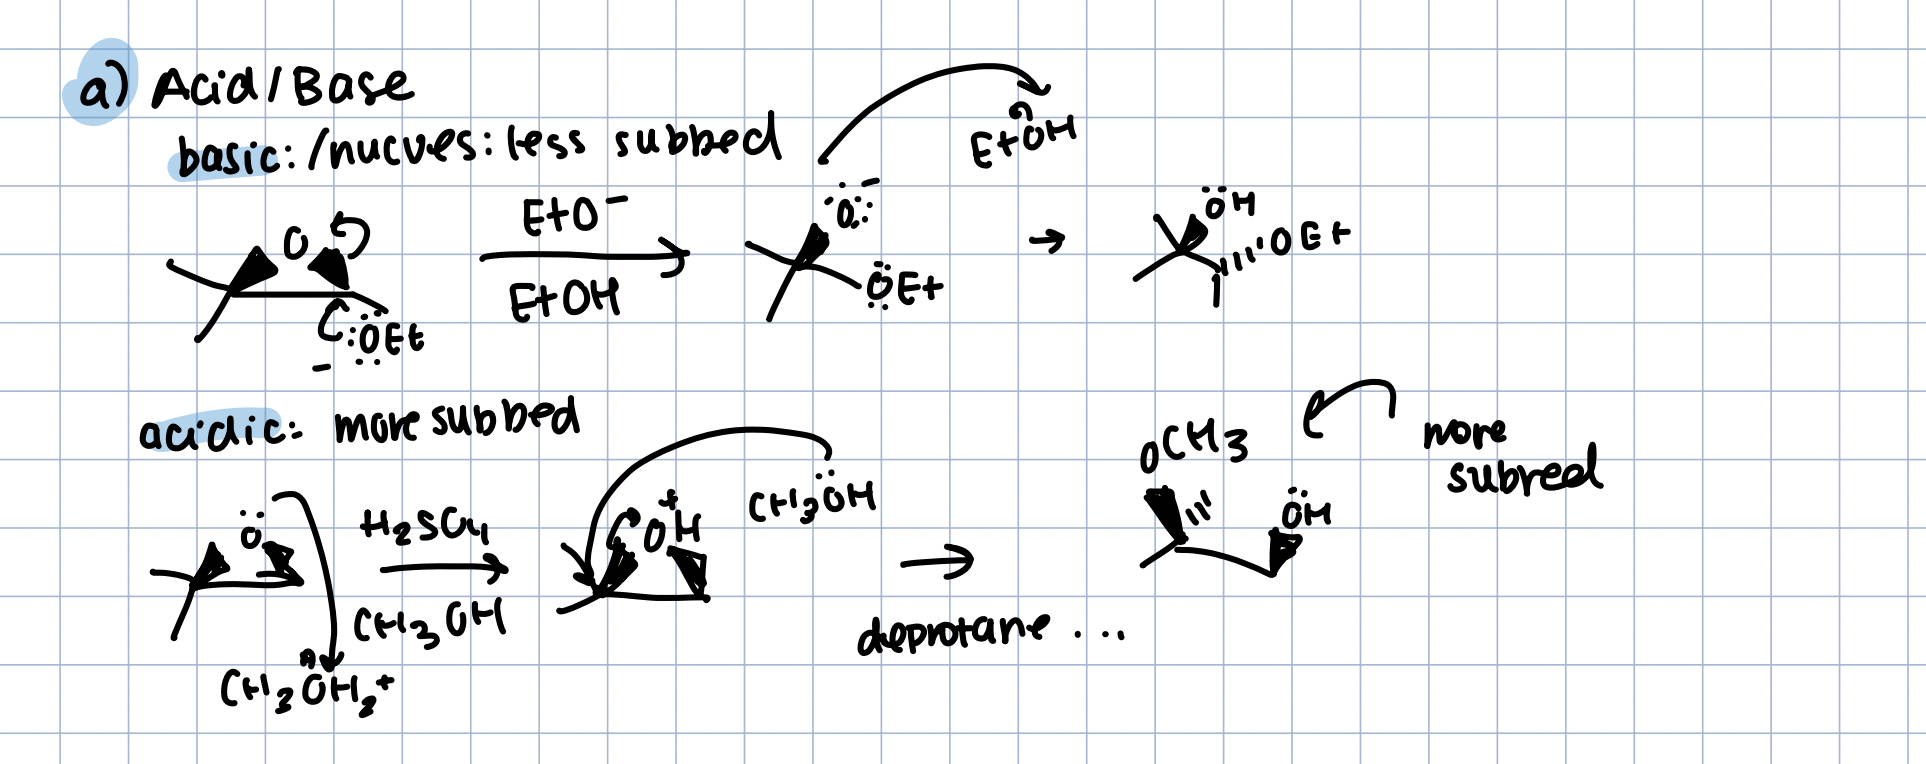 a) Acid/Base
basic: /nucves: less subbed
EtOH
O
EtO⁻
EtOH
:OEt
⁻
O:⁻
OEt
OH
OEt
acidic: more subbed
O
H₂SO₄
CH₃OH
CH₃OH₂⁺
OH⁺
CH₃OH
deprotane ...
OCH3
OH
more
subred